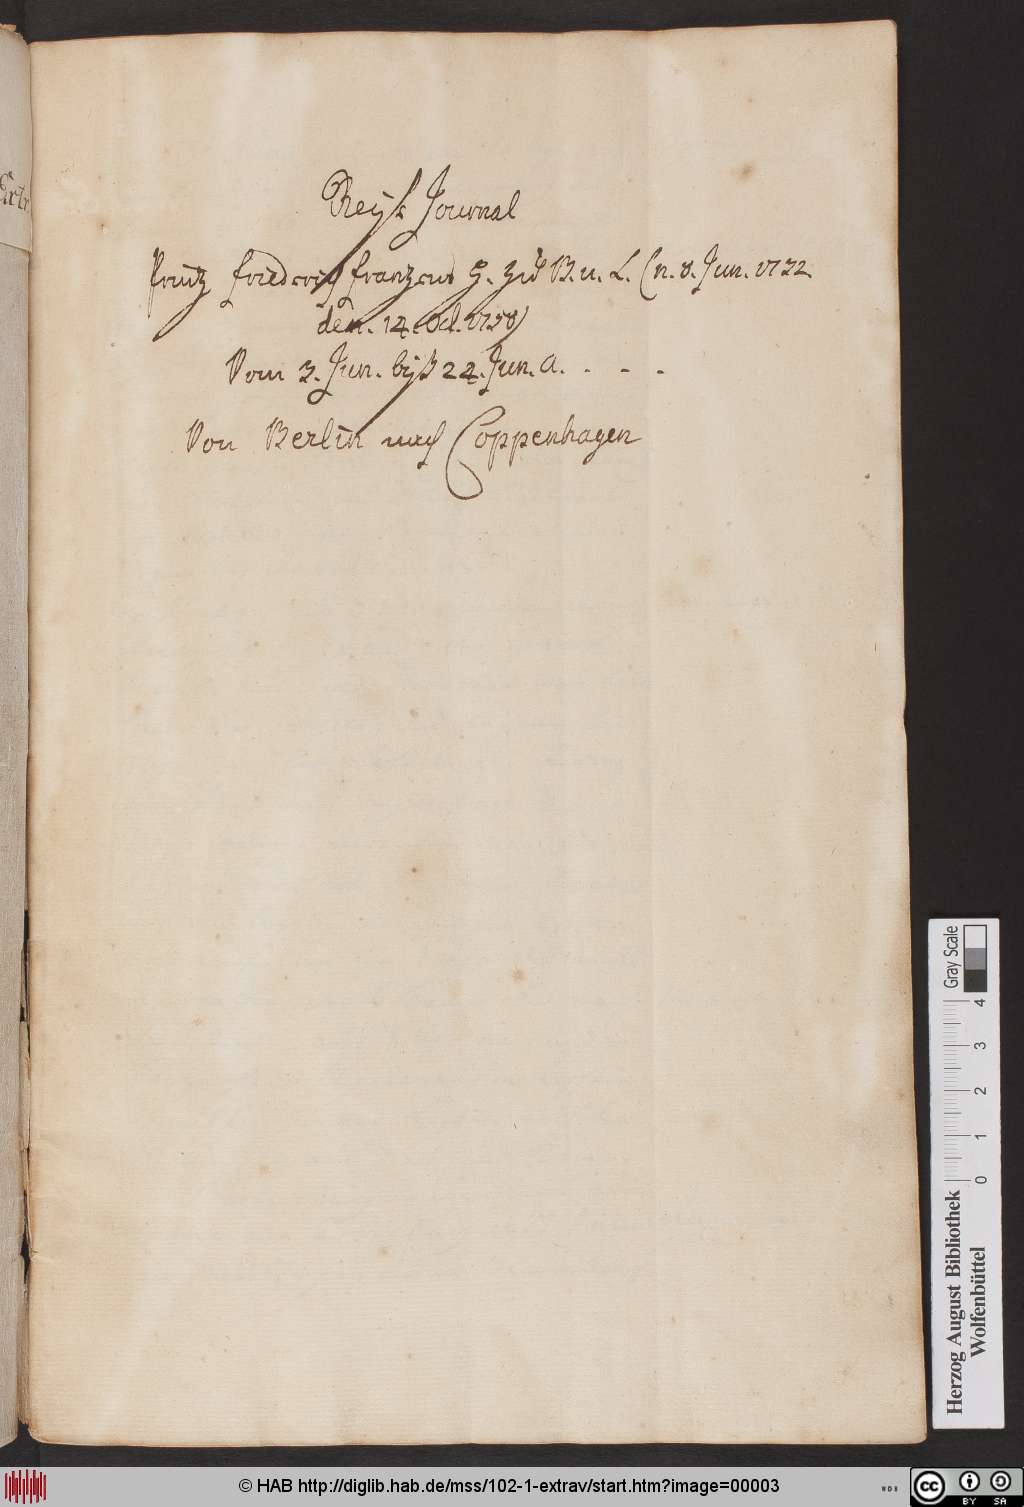 Reyß Journal
Printz Friederich Frantzens H. zu B. u. L. (n. 8. Jun. 1732
den. 14. Oct. 1758)
Vom 3. Jun. biß 24. Jun. A. . . .
Von Berlin nach Coppenhagen
Extr
Gray Scale
0 1 2 3 4
Herzog August Bibliothek
Wolfenbüttel
© HAB http://diglib.hab.de/mss/102-1-extrav/start.htm?image=00003
WDB
cc
BY SA